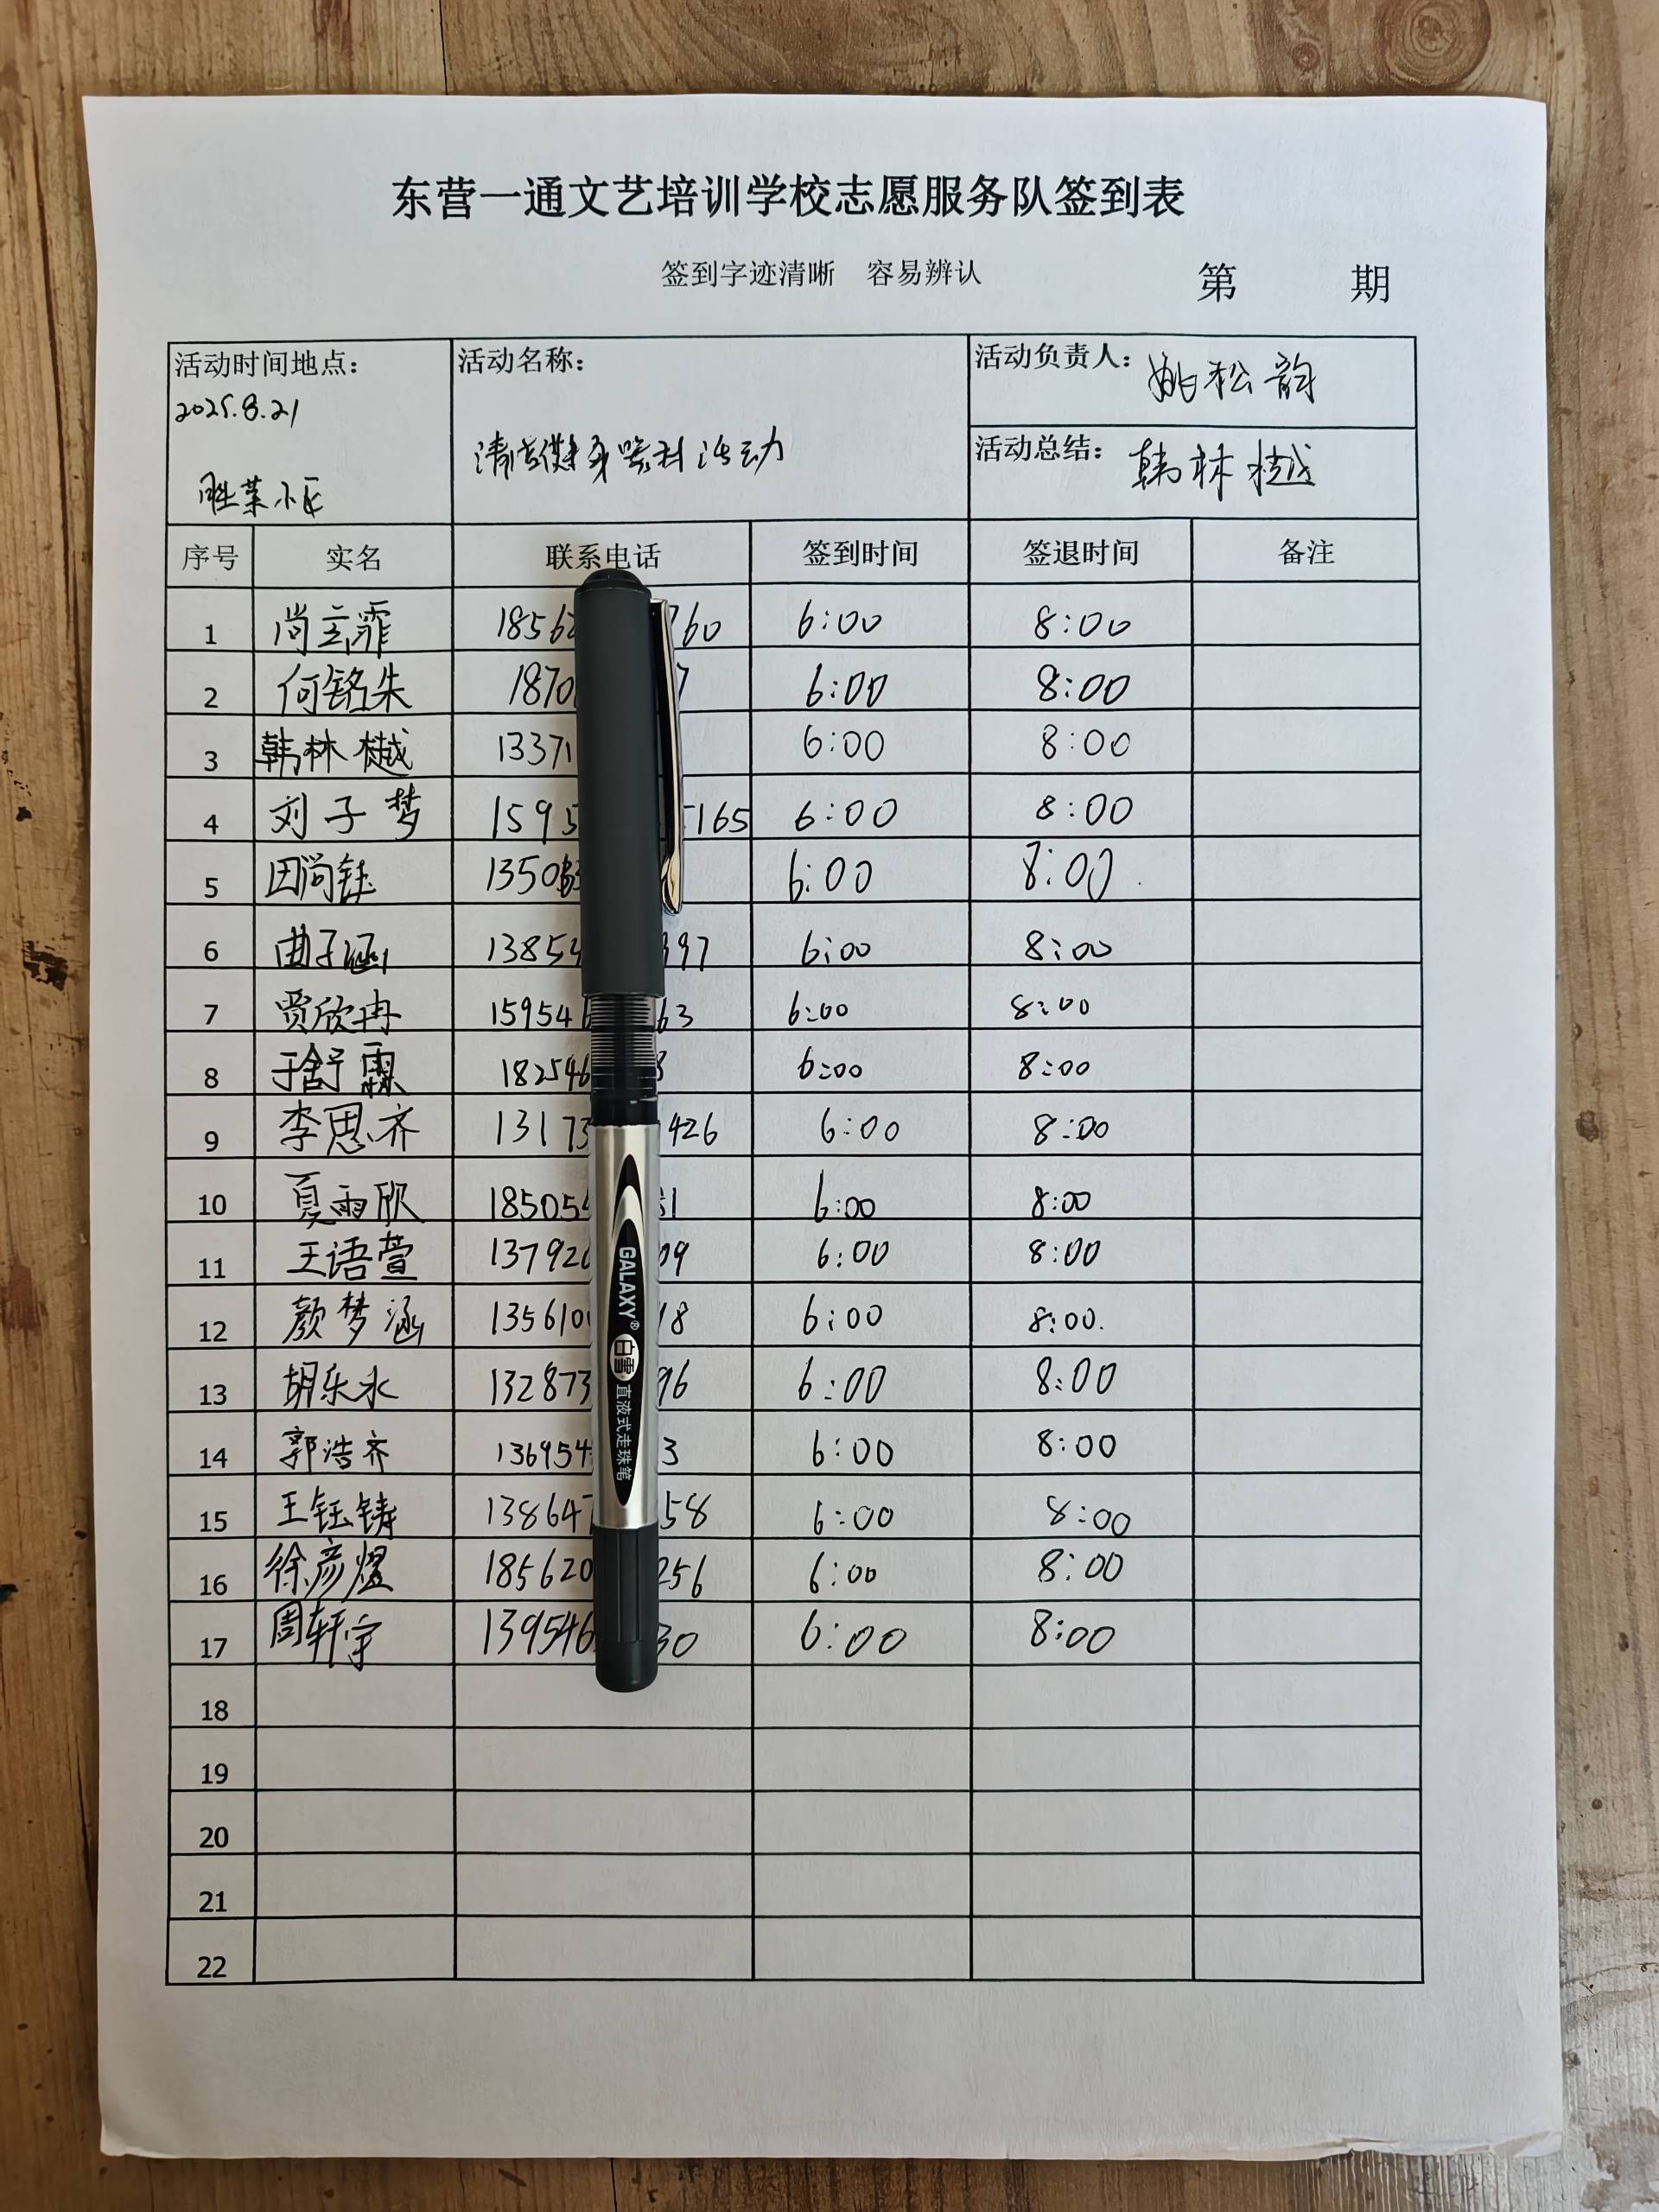 东营一通文艺培训学校志愿服务队签到表
签到字迹清晰 容易辨认
第 期
活动时间地点：
2025.8.21
胜莱小区
活动名称：
清洁健身器材活动
活动负责人： 姚松韵
活动总结： 韩林樾
序号 实名 联系电话 签到时间 签退时间 备注
1 尚立霏 1856 760 6:00 8:00
2 何铭朱 1870 7 6:00 8:00
3 韩林樾 1337 6:00 8:00
4 刘子梦 1595 165 6:00 8:00
5 田尚钰 1350 6:00 8:00
6 曲子涵 1385 97 6:00 8:00
7 贾欣冉 15954 63 6:00 8:00
8 于舒霖 182546 6:00 8:00
9 李思齐 13173 426 6:00 8:00
10 夏雨欣 18505 1 6:00 8:00
11 王语萱 13792 09 6:00 8:00
12 颜梦涵 135610 18 6:00 8:00.
13 胡乐水 132873 96 6:00 8:00
14 郭浩齐 136954 3 6:00 8:00
15 王钰铸 138647 58 6:00 8:00
16 徐彦煜 185620 256 6:00 8:00
17 周轩宇 139546 30 6:00 8:00
18
19
20
21
22
GALAXY® 白雪 直液式走珠笔